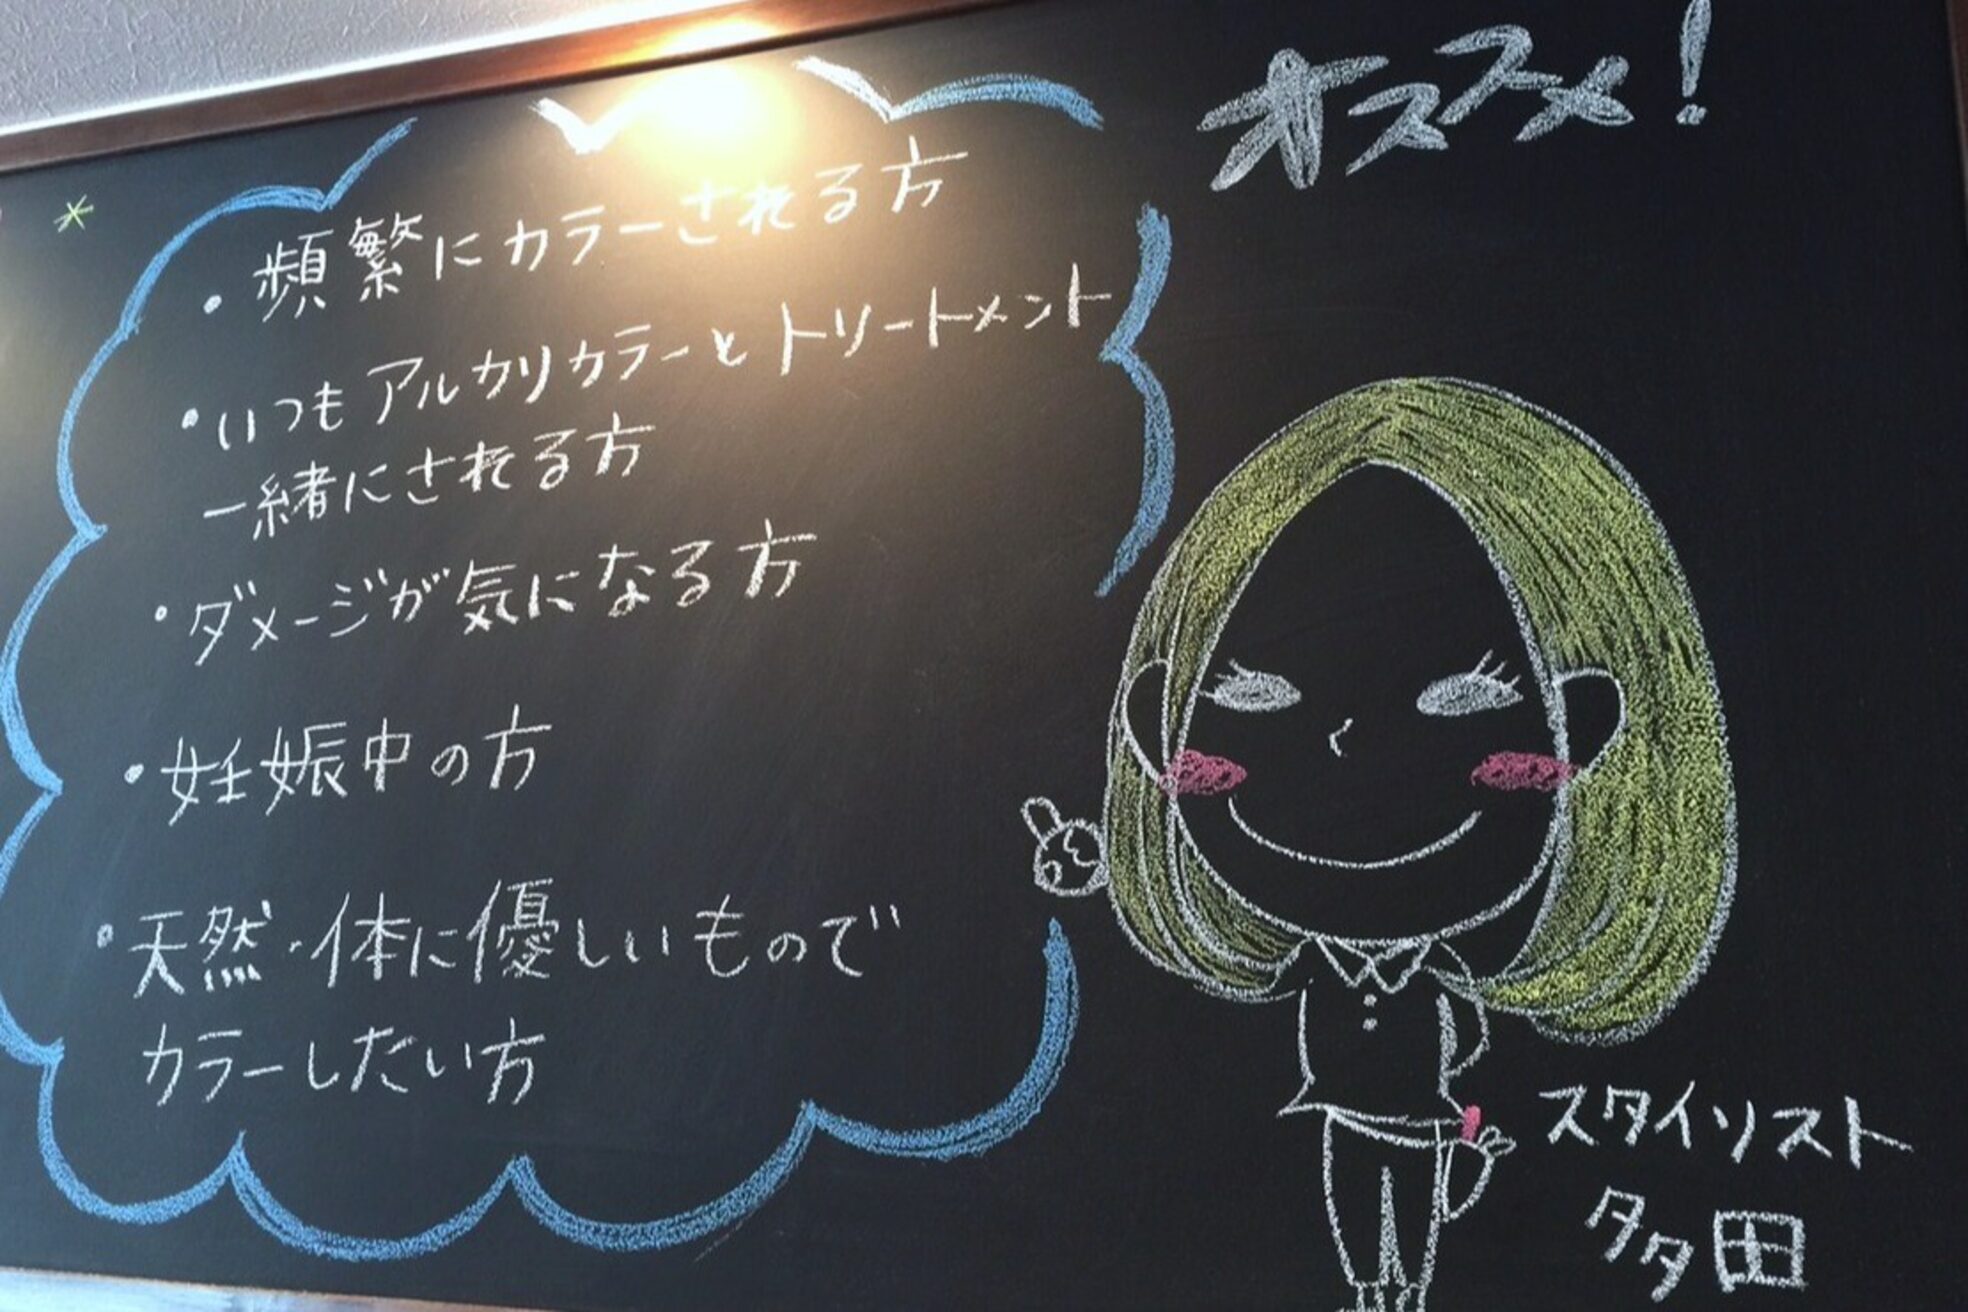 オススメ!
・頻繁にカラーされる方
・いつもアルカリカラーとトリートメント
一緒にされる方
・ダメージが気になる方
・妊娠中の方
・天然・体に優しいもので
カラーしたい方
スタイリスト
多田